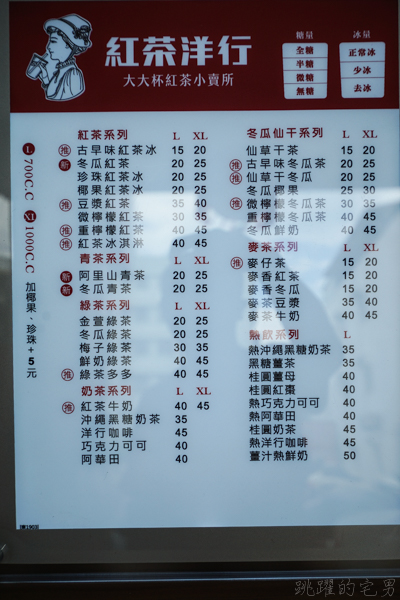 紅茶洋行
大大杯紅茶小賣所
糖量
全糖
半糖
微糖
無糖
冰量
正常冰
少冰
去冰
L 700C.C
XL 1000C.C
加椰果、珍珠+5元
紅茶系列 L XL
推 古早味紅茶冰 15 20
新 冬瓜紅茶 20 25
珍珠紅茶冰 20 25
椰果紅茶冰 20 25
推 豆漿紅茶 35 40
微檸檬紅茶 30 35
推 重檸檬紅茶 40 45
推 紅茶冰淇淋 40 45
青茶系列 L XL
新 阿里山青茶 20 25
新 冬瓜青茶 20 25
綠茶系列 L XL
金萱綠茶 20 25
冬瓜綠茶 20 25
梅子綠茶 30 35
鮮奶綠茶 40 45
推 綠茶多多 40 45
奶茶系列 L XL
推 紅茶牛奶 40 45
沖繩黑糖奶茶 35
洋行咖啡 45
巧克力可可 40
阿華田 40
冬瓜仙干系列 L XL
仙草干茶 15 20
推 古早味冬瓜茶 20 25
推 仙草干冬瓜 20 25
冬瓜椰果 25 30
推 微檸檬冬瓜茶 30 35
重檸檬冬瓜茶 40 45
冬瓜鮮奶 40 45
麥茶系列 L XL
推 麥仔茶 15 20
麥香紅茶 15 20
麥香冬瓜 15 20
麥茶豆漿 35 40
麥茶牛奶 40 45
熱飲系列 L
熱沖繩黑糖奶茶 35
黑糖薑茶 35
桂圓薑母 40
桂圓紅棗 40
熱巧克力可可 40
熱阿華田 40
桂圓奶茶 45
熱洋行咖啡 45
薑汁熱鮮奶 50
跳躍的宅男